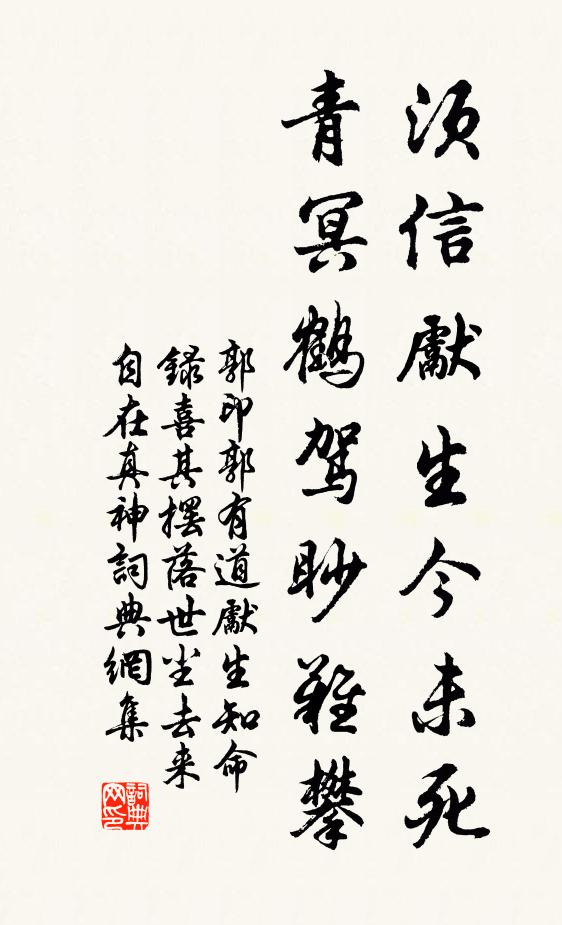 須信獻生今未死
青冥鶴駕眇難攀
郭印郭有道獻生知命
録喜其擺落世尘去来
自在真神詞典網集
詞典网印